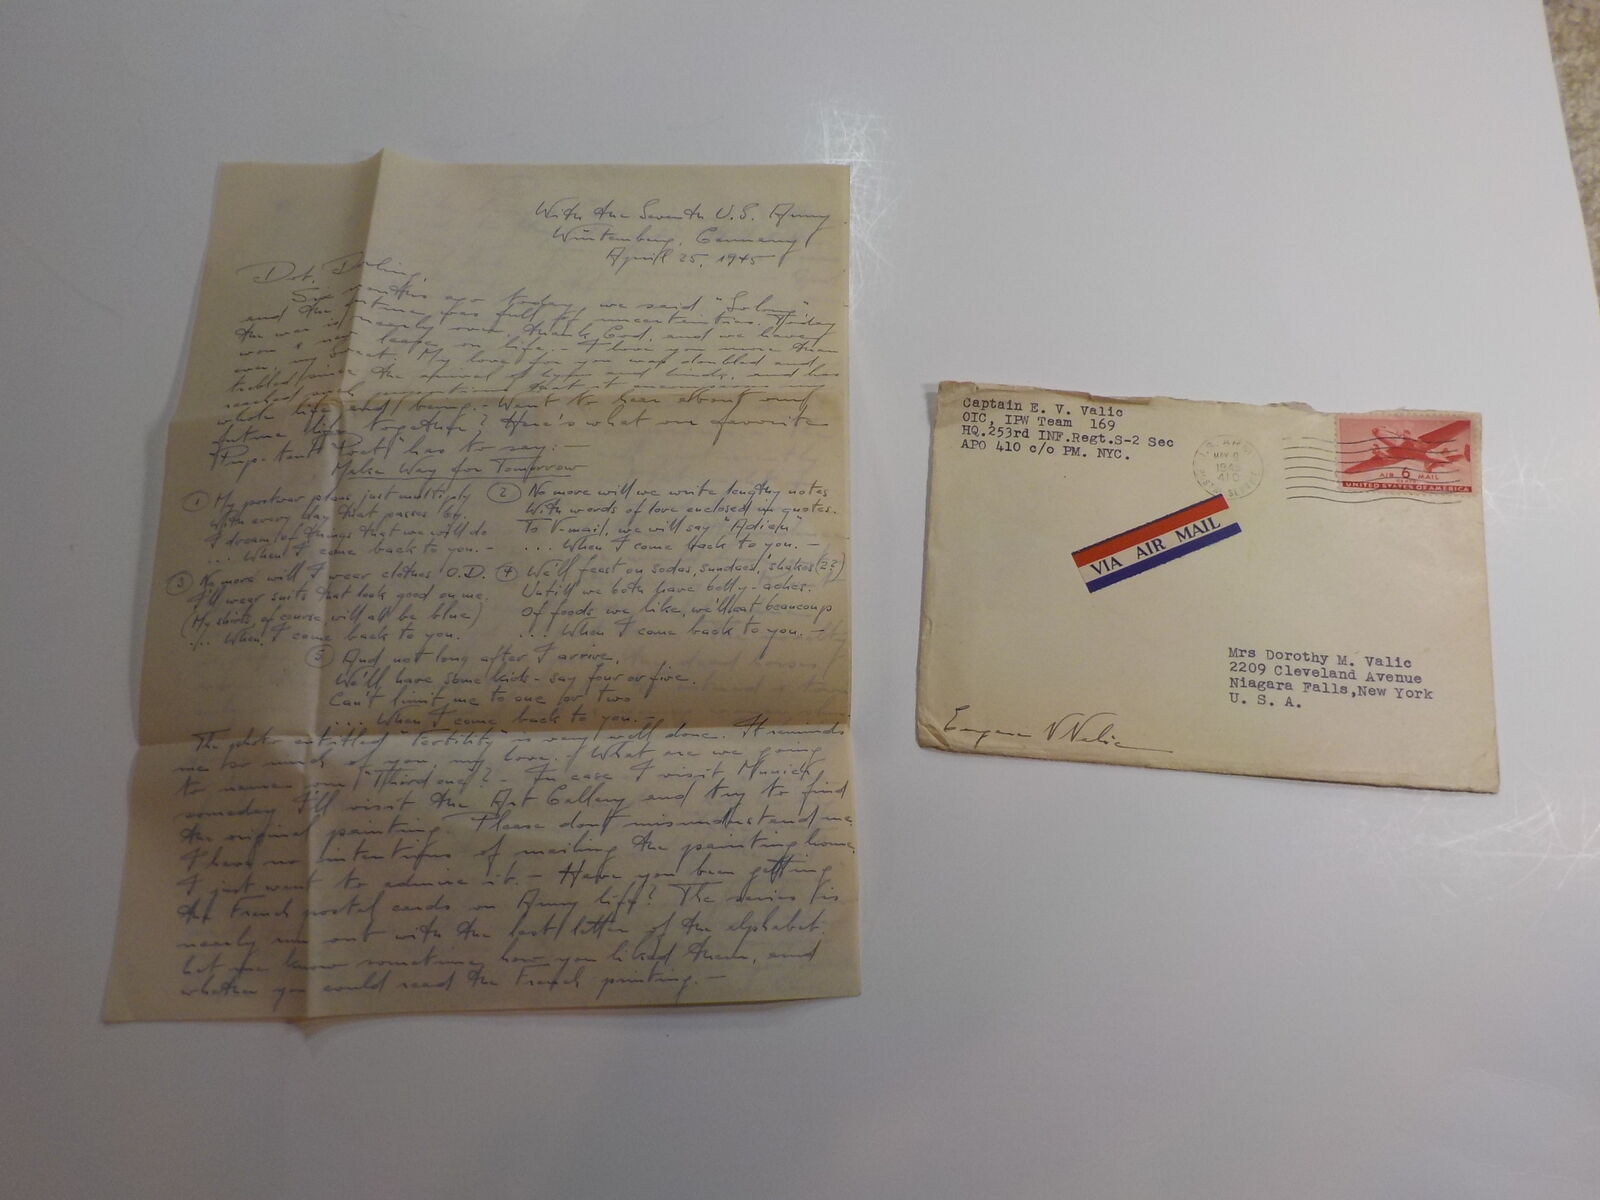 With the Seventh U.S. Army
Würtemberg, Germany
April 25, 1945
Dot, Darling,
Six months ago today, we said "Solong",
and the future was full of uncertainties. Today
the war is nearly over, thank God, and we have
won a new lease on life. - I love you more than
ever, my sweet. My love for you was doubled and
tripled since the arrival of and Linda, and has
reached such proportions that it encompasses my
whole life and being. - Want to hear about our
future life together? Here's what our favorite
"Pup-tent Poet" has to say: -
Make Way for Tomorrow
① My postwar plans just multiply
With every day that passes by.
I dream of things that we will do
... When I come back to you. -
② No more will we write lengthy notes
With words of love enclosed in quotes.
To V-mail, we will say "Adieu"
... When I come back to you. -
③ No more will I wear clothes O.D.
I'll wear suits that look good on me.
(My shirts, of course, will all be blue)
... When I come back to you.
④ We'll feast on sodas, sundaes, shakes (2?)
Untill we both have belly-aches.
Of foods we like, we'll eat beaucoup
... When I come back to you. -
⑤ And not long after I arrive,
We'll have some kids - say four or five.
Can't limit me to one or two
... When I come back to you. -
The photo entitled "Fertility" is very well done. It reminds
me so much of you, my love. What are we going
to name our "Third one"? - In case I visit Munich
someday I'll visit the Art Gallery and try to find
the original painting. Please don't misunderstand me.
I have no intentions of mailing the painting home.
I just want to admire it. - Have you been getting
the French postal cards on Army life? The series is
nearly run out with the last letter of the alphabet.
Let me know sometime, how you liked them, and
whether you could read the French printing. -
Captain E. V. Valic
OIC, IPW Team 169
HQ.253rd INF.Regt.S-2 Sec
APO 410 c/o PM. NYC.
MAY
1945
410
AIR 6¢ MAIL
UNITED STATES OF AMERICA
VIA AIR MAIL
Mrs Dorothy M. Valic
2209 Cleveland Avenue
Niagara Falls,New York
U. S. A.
Eugene V Valic